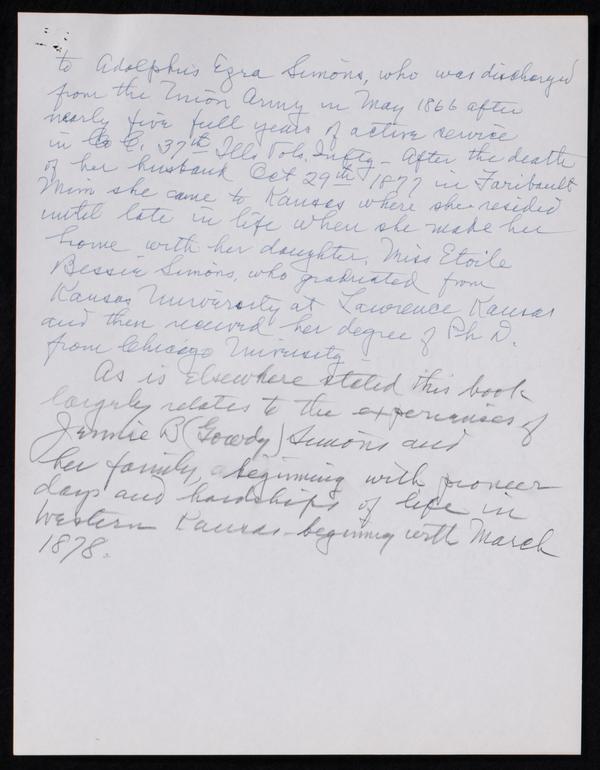 to Adolphus Ezra Simons, who was discharged
from the Union Army in May 1866 after
nearly five full years of active service
in Co C. 37th Ills Vols. Infty - After the death
of her husband Oct 29th 1877 in Faribault
Minn she came to Kansas where she resided
until late in life when she made her
home with her daughter, Miss Etoile
Bessie Simons, who graduated from
Kansas University at Lawrence Kansas
and then received her degree of Ph D.
from Chicago University -
As is elsewhere stated this book
largely relates to the experiences of
Jennie B (Gowdy) Simons and
her family, beginning with pioneer
days and hardships of life in
Western Kansas - beginning with March
1878.